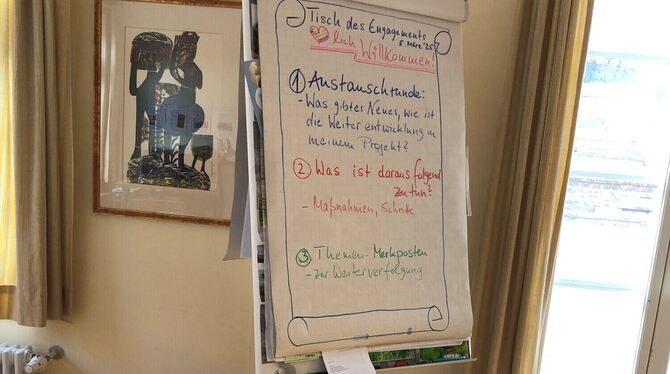 Tisch des Engagements
5. März '25
lich Willkommen!
① Austauschrunde:
- Was gibt es Neues, wie ist
die Weiterentwicklung in
meinem Projekt?
② Was ist daraus folgend
zu tun?
- Maßnahmen, Schritte
③ Themen-Merkposten
- zur Weiterverfolgung